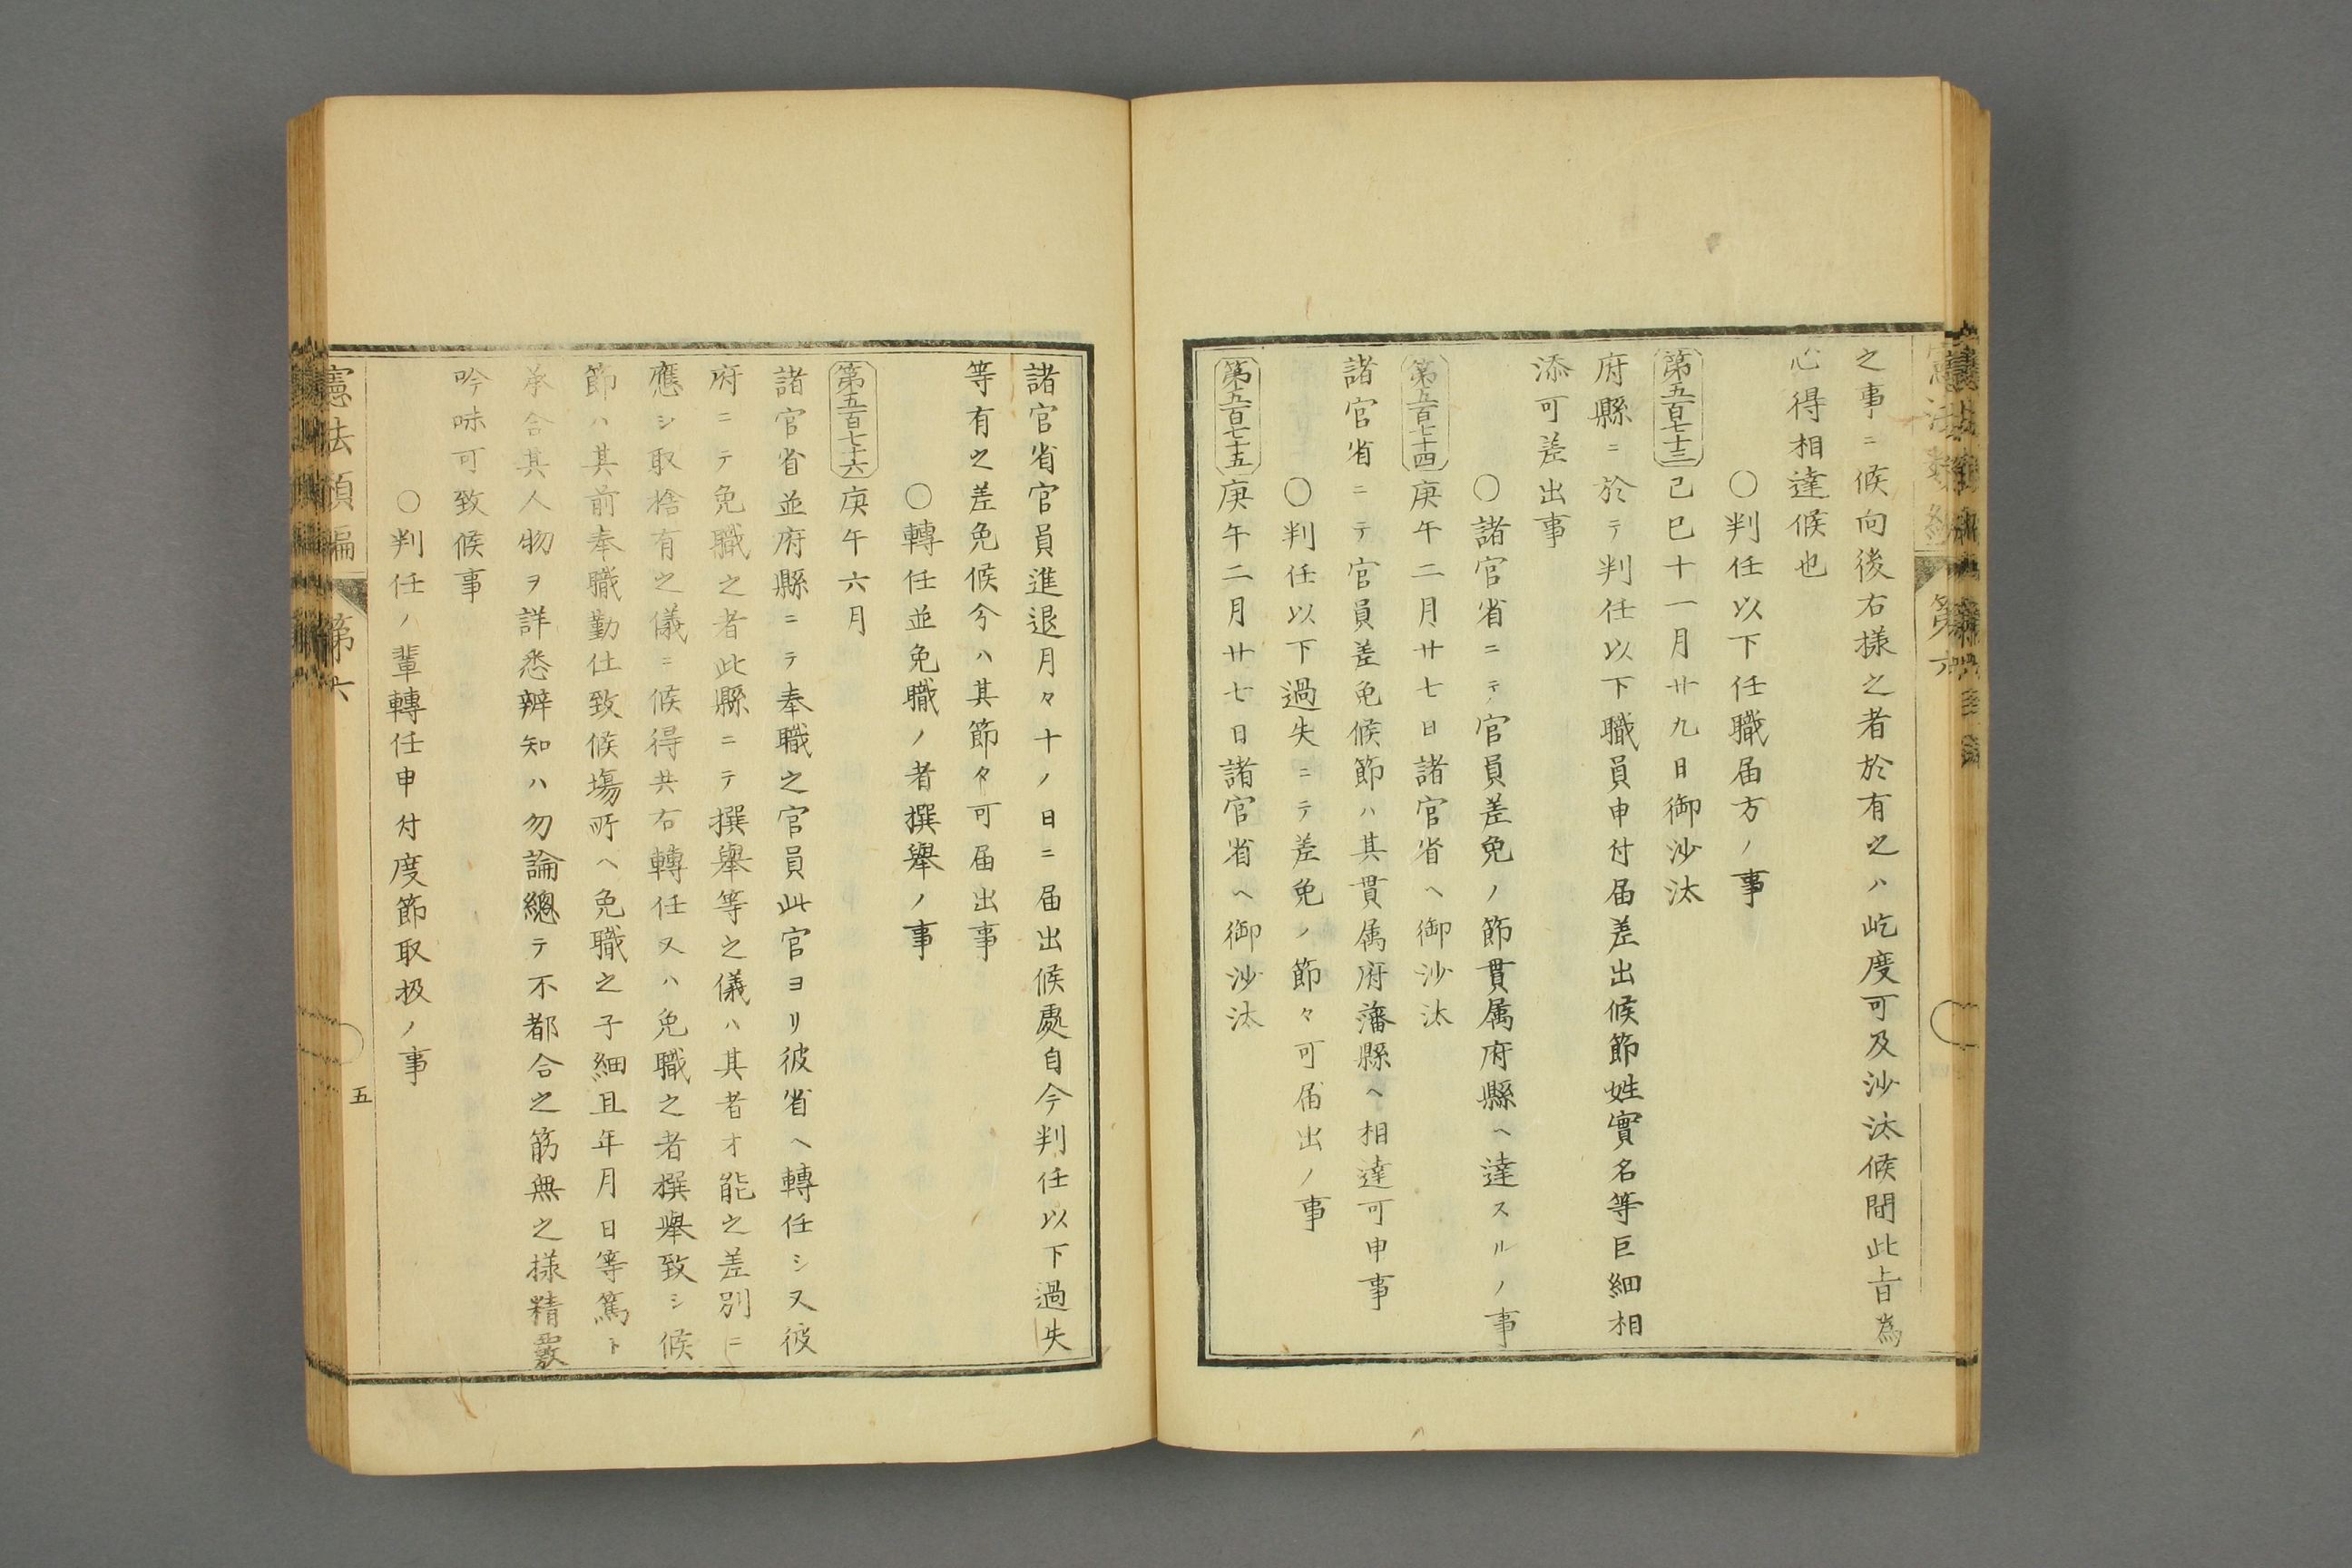 之事ニ候向後右様之者於有之ハ屹度可及沙汰候間此旨為
心得相達候也
○判任以下任職届方ノ事
第五百七十三 己巳十一月廿九日御沙汰
府縣ニ於テ判任以下職員申付届差出候節姓實名等巨細相
添可差出事
○諸官省ニテ官員差免ノ節貫属府縣ヘ達スルノ事
第五百七十四 庚午二月廿七日諸官省ヘ御沙汰
諸官省ニテ官員差免候節ハ其貫属府藩縣ヘ相達可申事
○判任以下過失ニテ差免ノ節々可届出ノ事
第五百七十五 庚午二月廿七日諸官省ヘ御沙汰
諸官省官員進退月々十ノ日ニ届出候處自今判任以下過失
等有之差免候分ハ其節々可届出事
○轉任並免職ノ者撰舉ノ事
第五百七十六 庚午六月
諸官省並府縣ニテ奉職之官員此官ヨリ彼省ヘ轉任シ又彼
府ニテ免職之者此縣ニテ撰舉等之儀ハ其者才能之差別ニ
應シ取捨有之儀ニ候得共右轉任又ハ免職之者撰舉致シ候
節ハ其前奉職勤仕致候場所ヘ免職之子細且年月日等篤ト
承合其人物ヲ詳悉辨知ハ勿論總テ不都合之筋無之様精覈
吟味可致候事
○判任ノ輩轉任申付度節取扱ノ事
憲法類編 第六
五